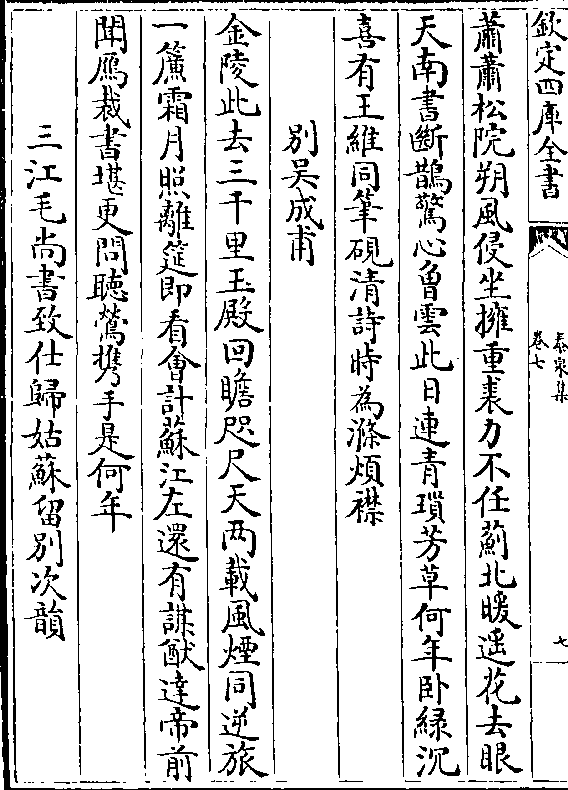 欽定四庫全書
泰泉集
卷七
七
蕭蕭松院朔風侵坐擁重裘力不任薊北暖遥花去眼
天南書斷鵲驚心魯雲此日連青瑣芳草何年卧緑沉
喜有王維同筆硯清詩時為滌煩襟
别吳成甫
金陵此去三千里玉殿回瞻咫尺天两載風煙同逆旅
一簾霜月照離筵即看會計蘇江左還有謀猷達帝前
聞鴈裁書堪更問聴鶯携手是何年
三江毛尚書致仕歸姑蘇留别次韻